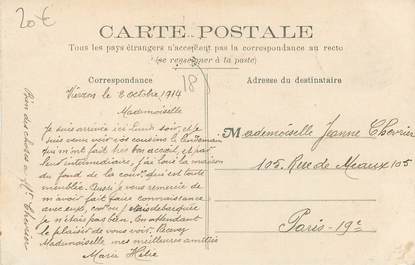 20€
CARTE POSTALE
Tous les pays étrangers n'acceptent pas la correspondance au recto
(se renseigner à la poste)
Correspondance
Adresse du destinataire
18
Vierzon le 2 octobre 1914
Mademoiselle
Je suis arrivée ici lundi soir, et je
suis venu voir vos cousins le lendemain
qui m'ont fait bon accueil, et par
leur intermédiaire, j'ai loué la maison
du fond de la cour, qui est toute
meublée. Aussi je vous remercie de
m'avoir fait faire connaissance
avec eux, car
je n'étais pas bien. En attendant
le plaisir de vous voir. Recevez
Mademoiselle mes meilleures amitiés
Marie Hélie
Bien des choses à Mr Chevrier
Mademoiselle Jeanne Chevrier
105, Rue de Meaux 105
Paris-19e